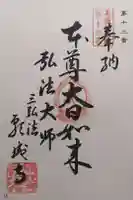 第十二番
奉納
本尊大日如来
弘法大師
三弘法